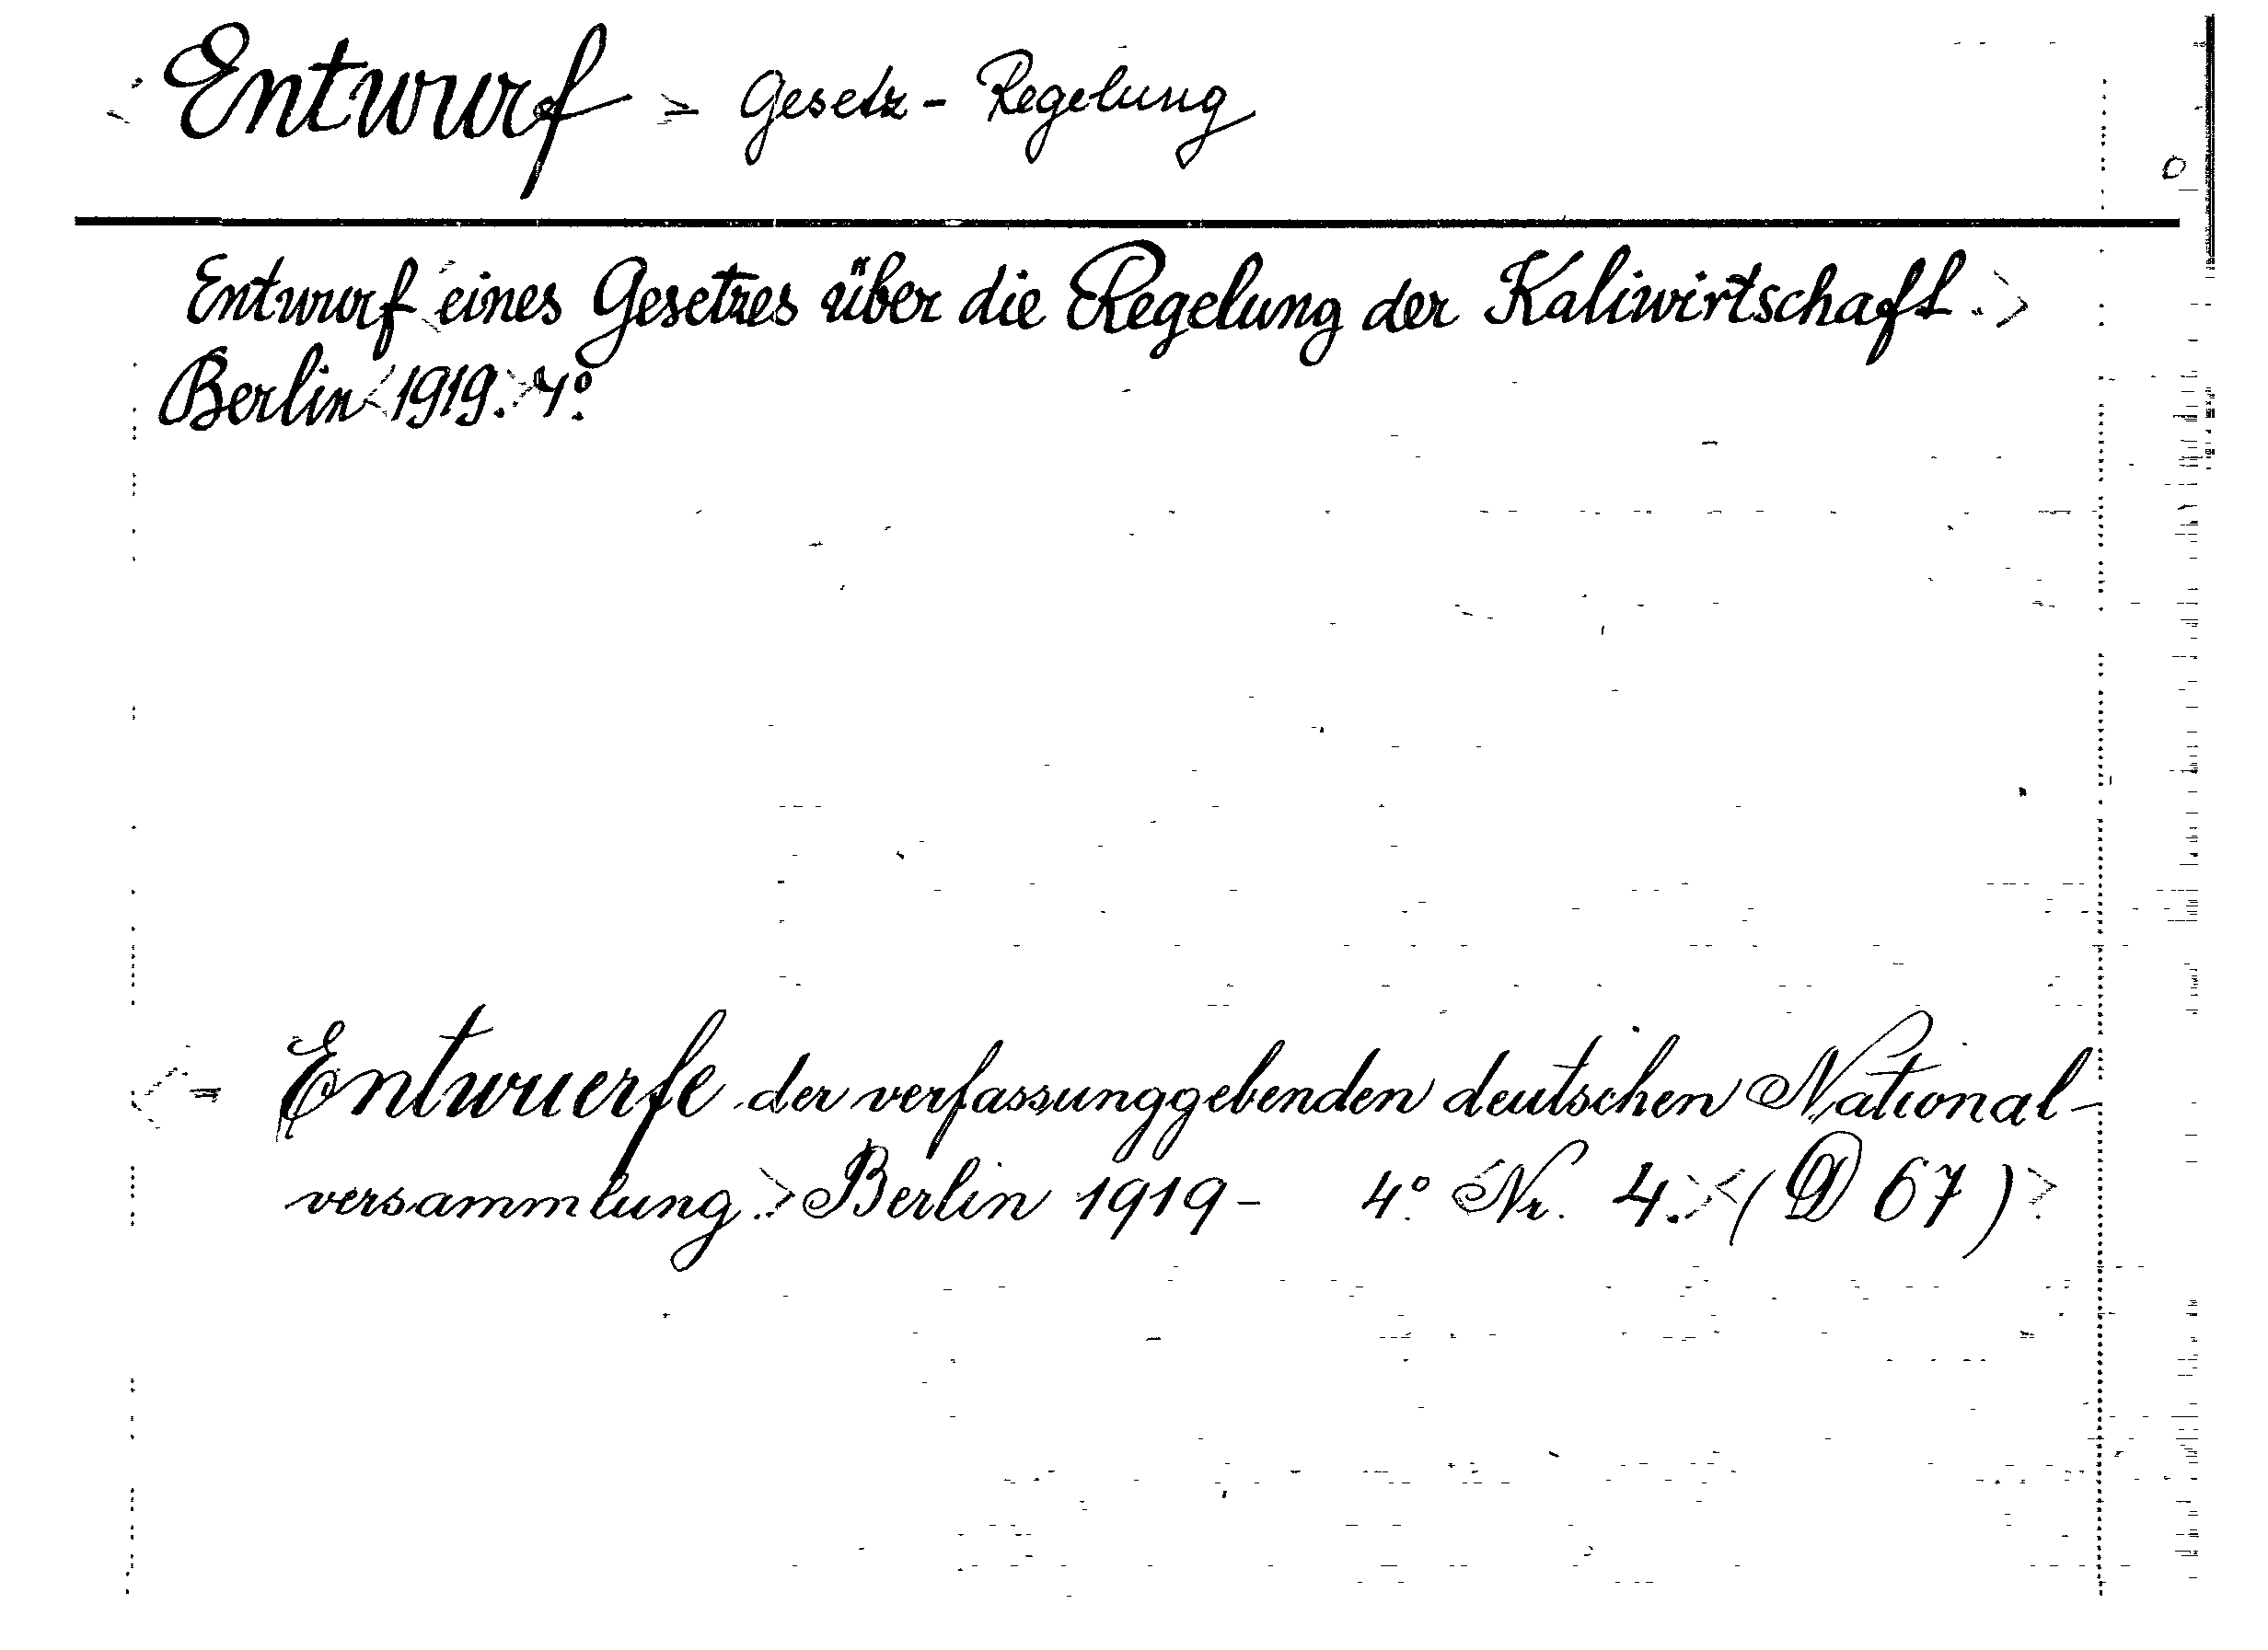 Entwurf > Gesetz - Regelung
Entwurf eines Gesetzes über die Regelung der Kaliwirtschaft.>
Berlin<1919.>4°.
<= Entwuerfe der verfassunggebenden deutschen National-
versammlung.> Berlin 1919- 4°. <Nr. 4.><( 67)>